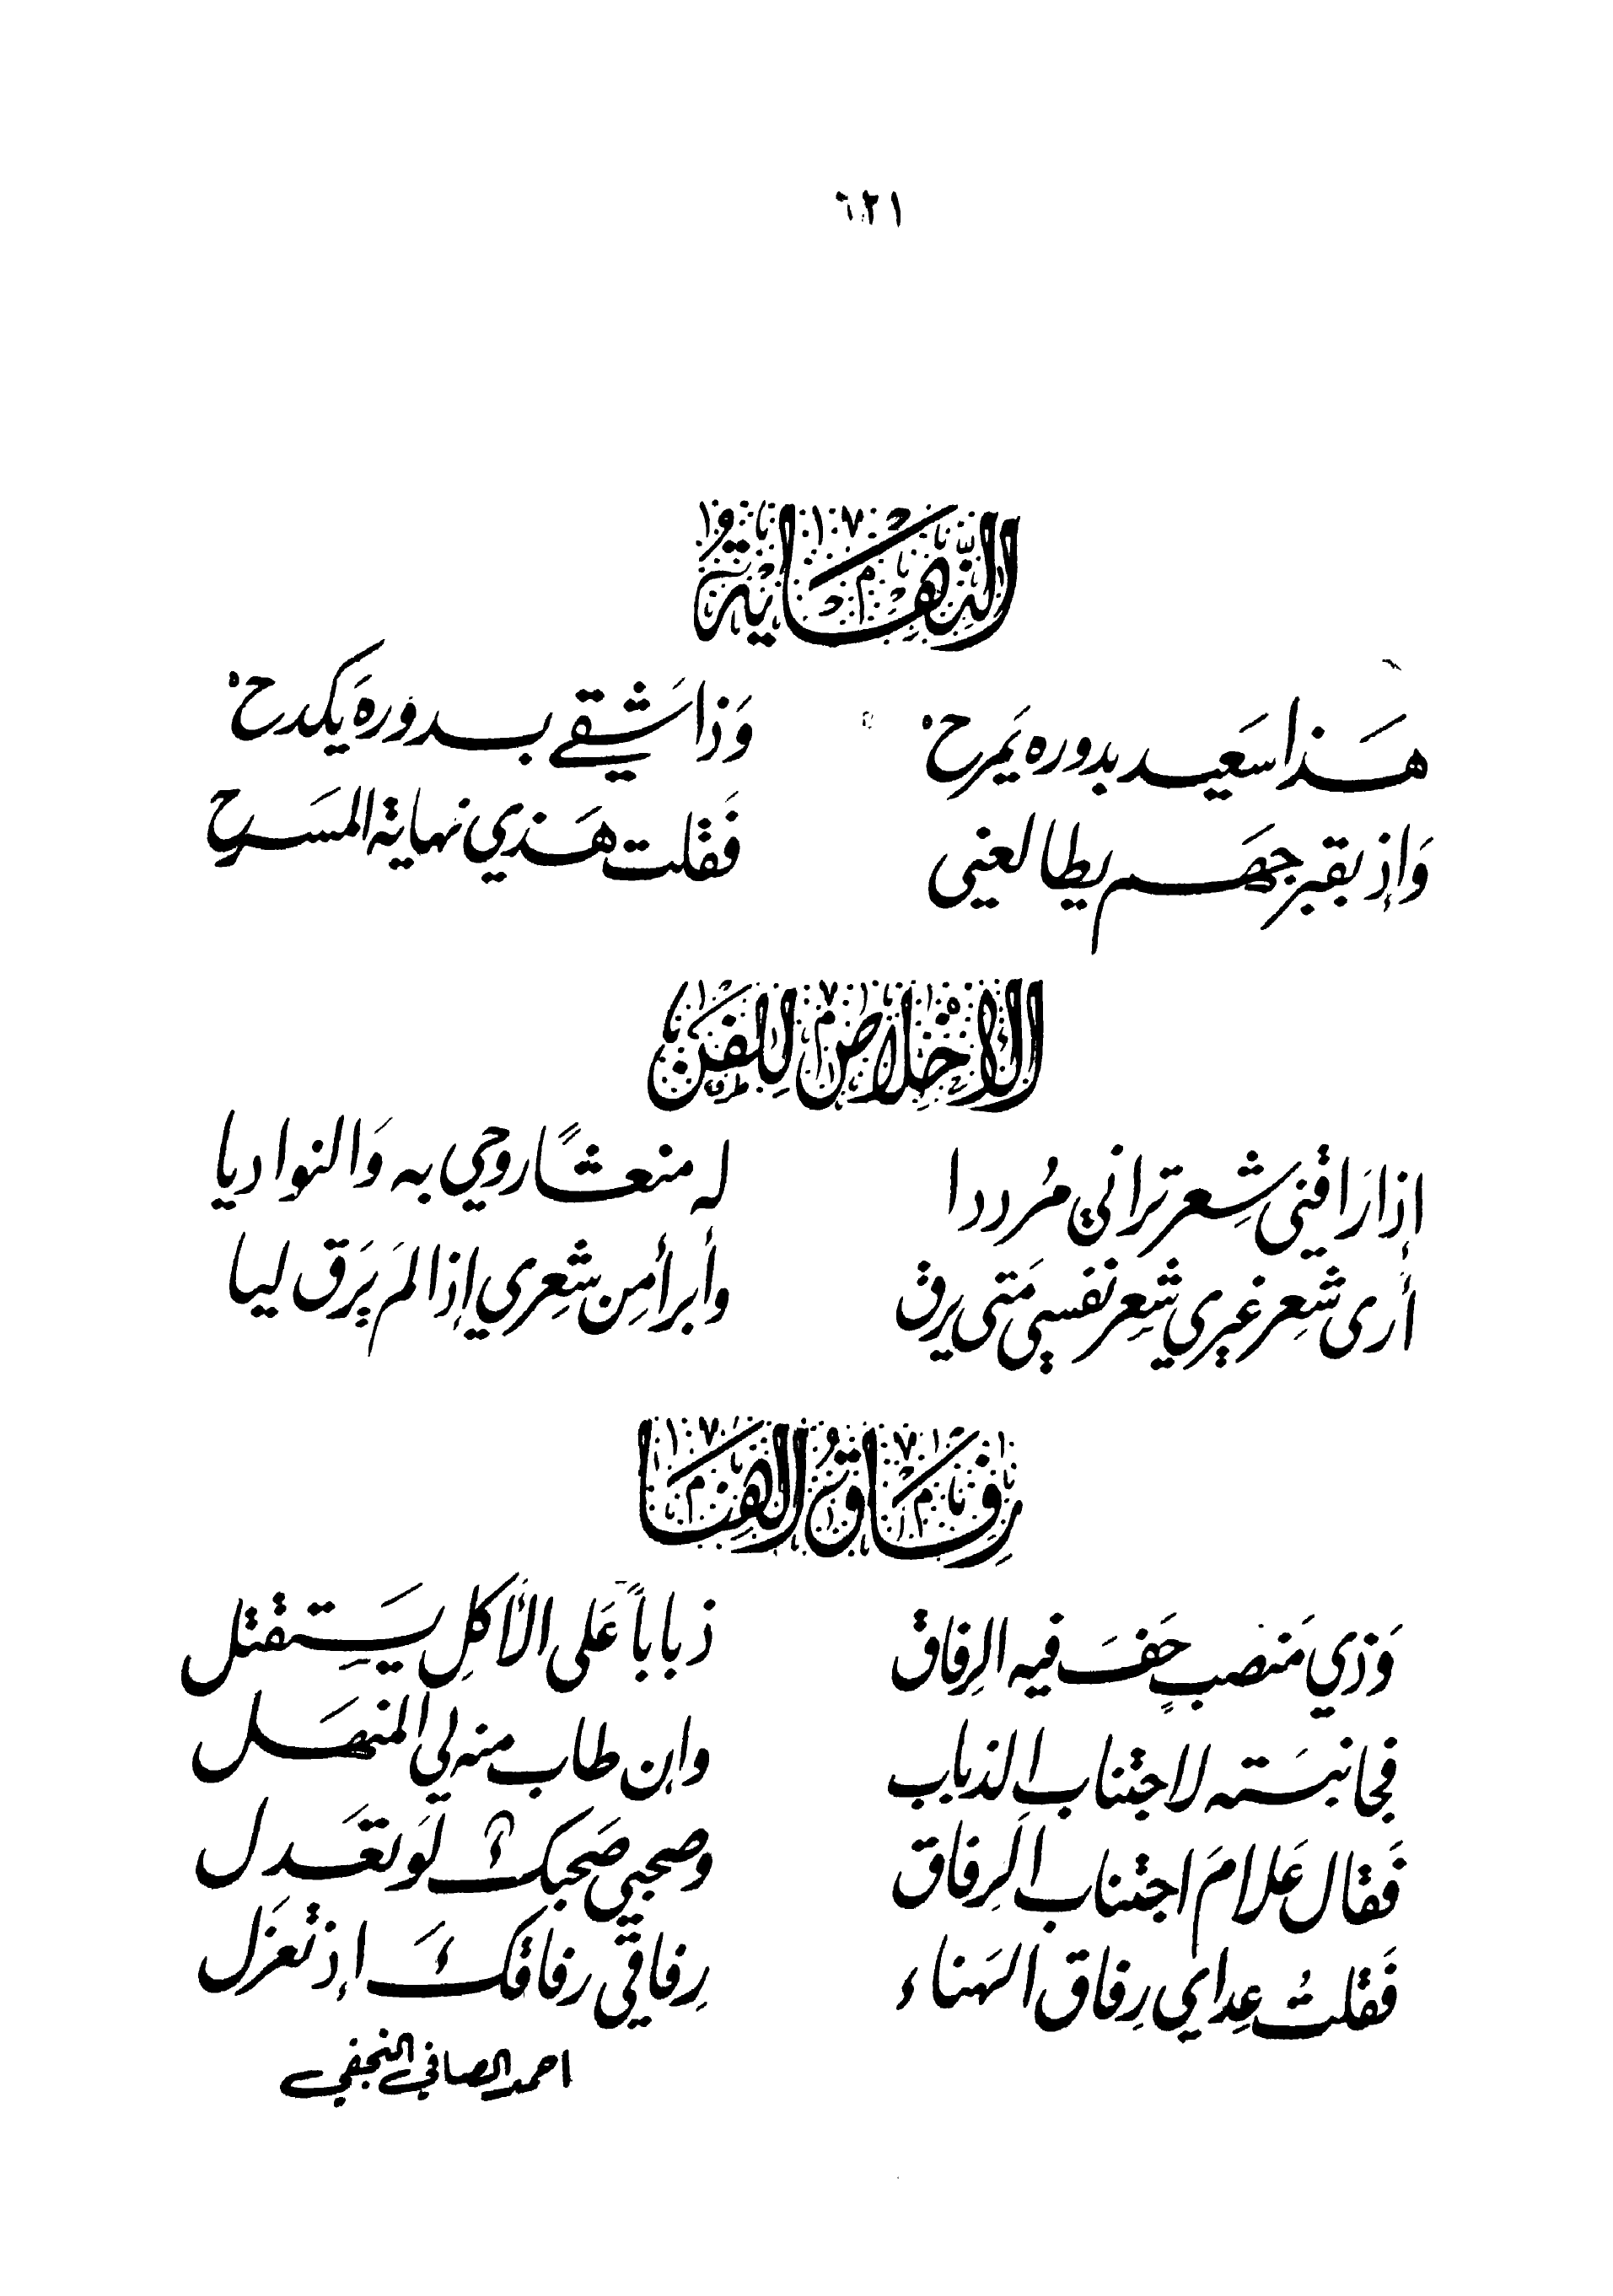 ٦٢١
النِّهَايَةُ
هَذا سَعيد بدوره يَمرح وَذا شَقي بدوره يَكدح
وَإذ بقبر جهَم يطالعني فَقلت هَذي نهاية المسَرح
الإخْلاصُ لِلفَنِ
إذا رَاقني شِعر تراني مُرددا له منعشاً روحي به وَالنواديا
أرى شعِر غيري شِعر نفسي مَتى يرق وأبرأ مِن شعِري إذا لمَ يَرق ليا
رِفَاقُ الهَنَا
وَذي مَنصبٍ حَفَ فيه الرِفاق ذباباً عَلى الأكلِ يَستِقتل
فجانبَته لاجتناب الذباب وإن طاب منه لي المنهَل
فَقال عَلامَ اجتناب الرِفاق وصحبي صَحبك لَو تعَدل
فَقلتُ عِداي رِفاق الهَناء رِفاقي رفاقكَ إذ تعزَل
احمد الصافي النجفي